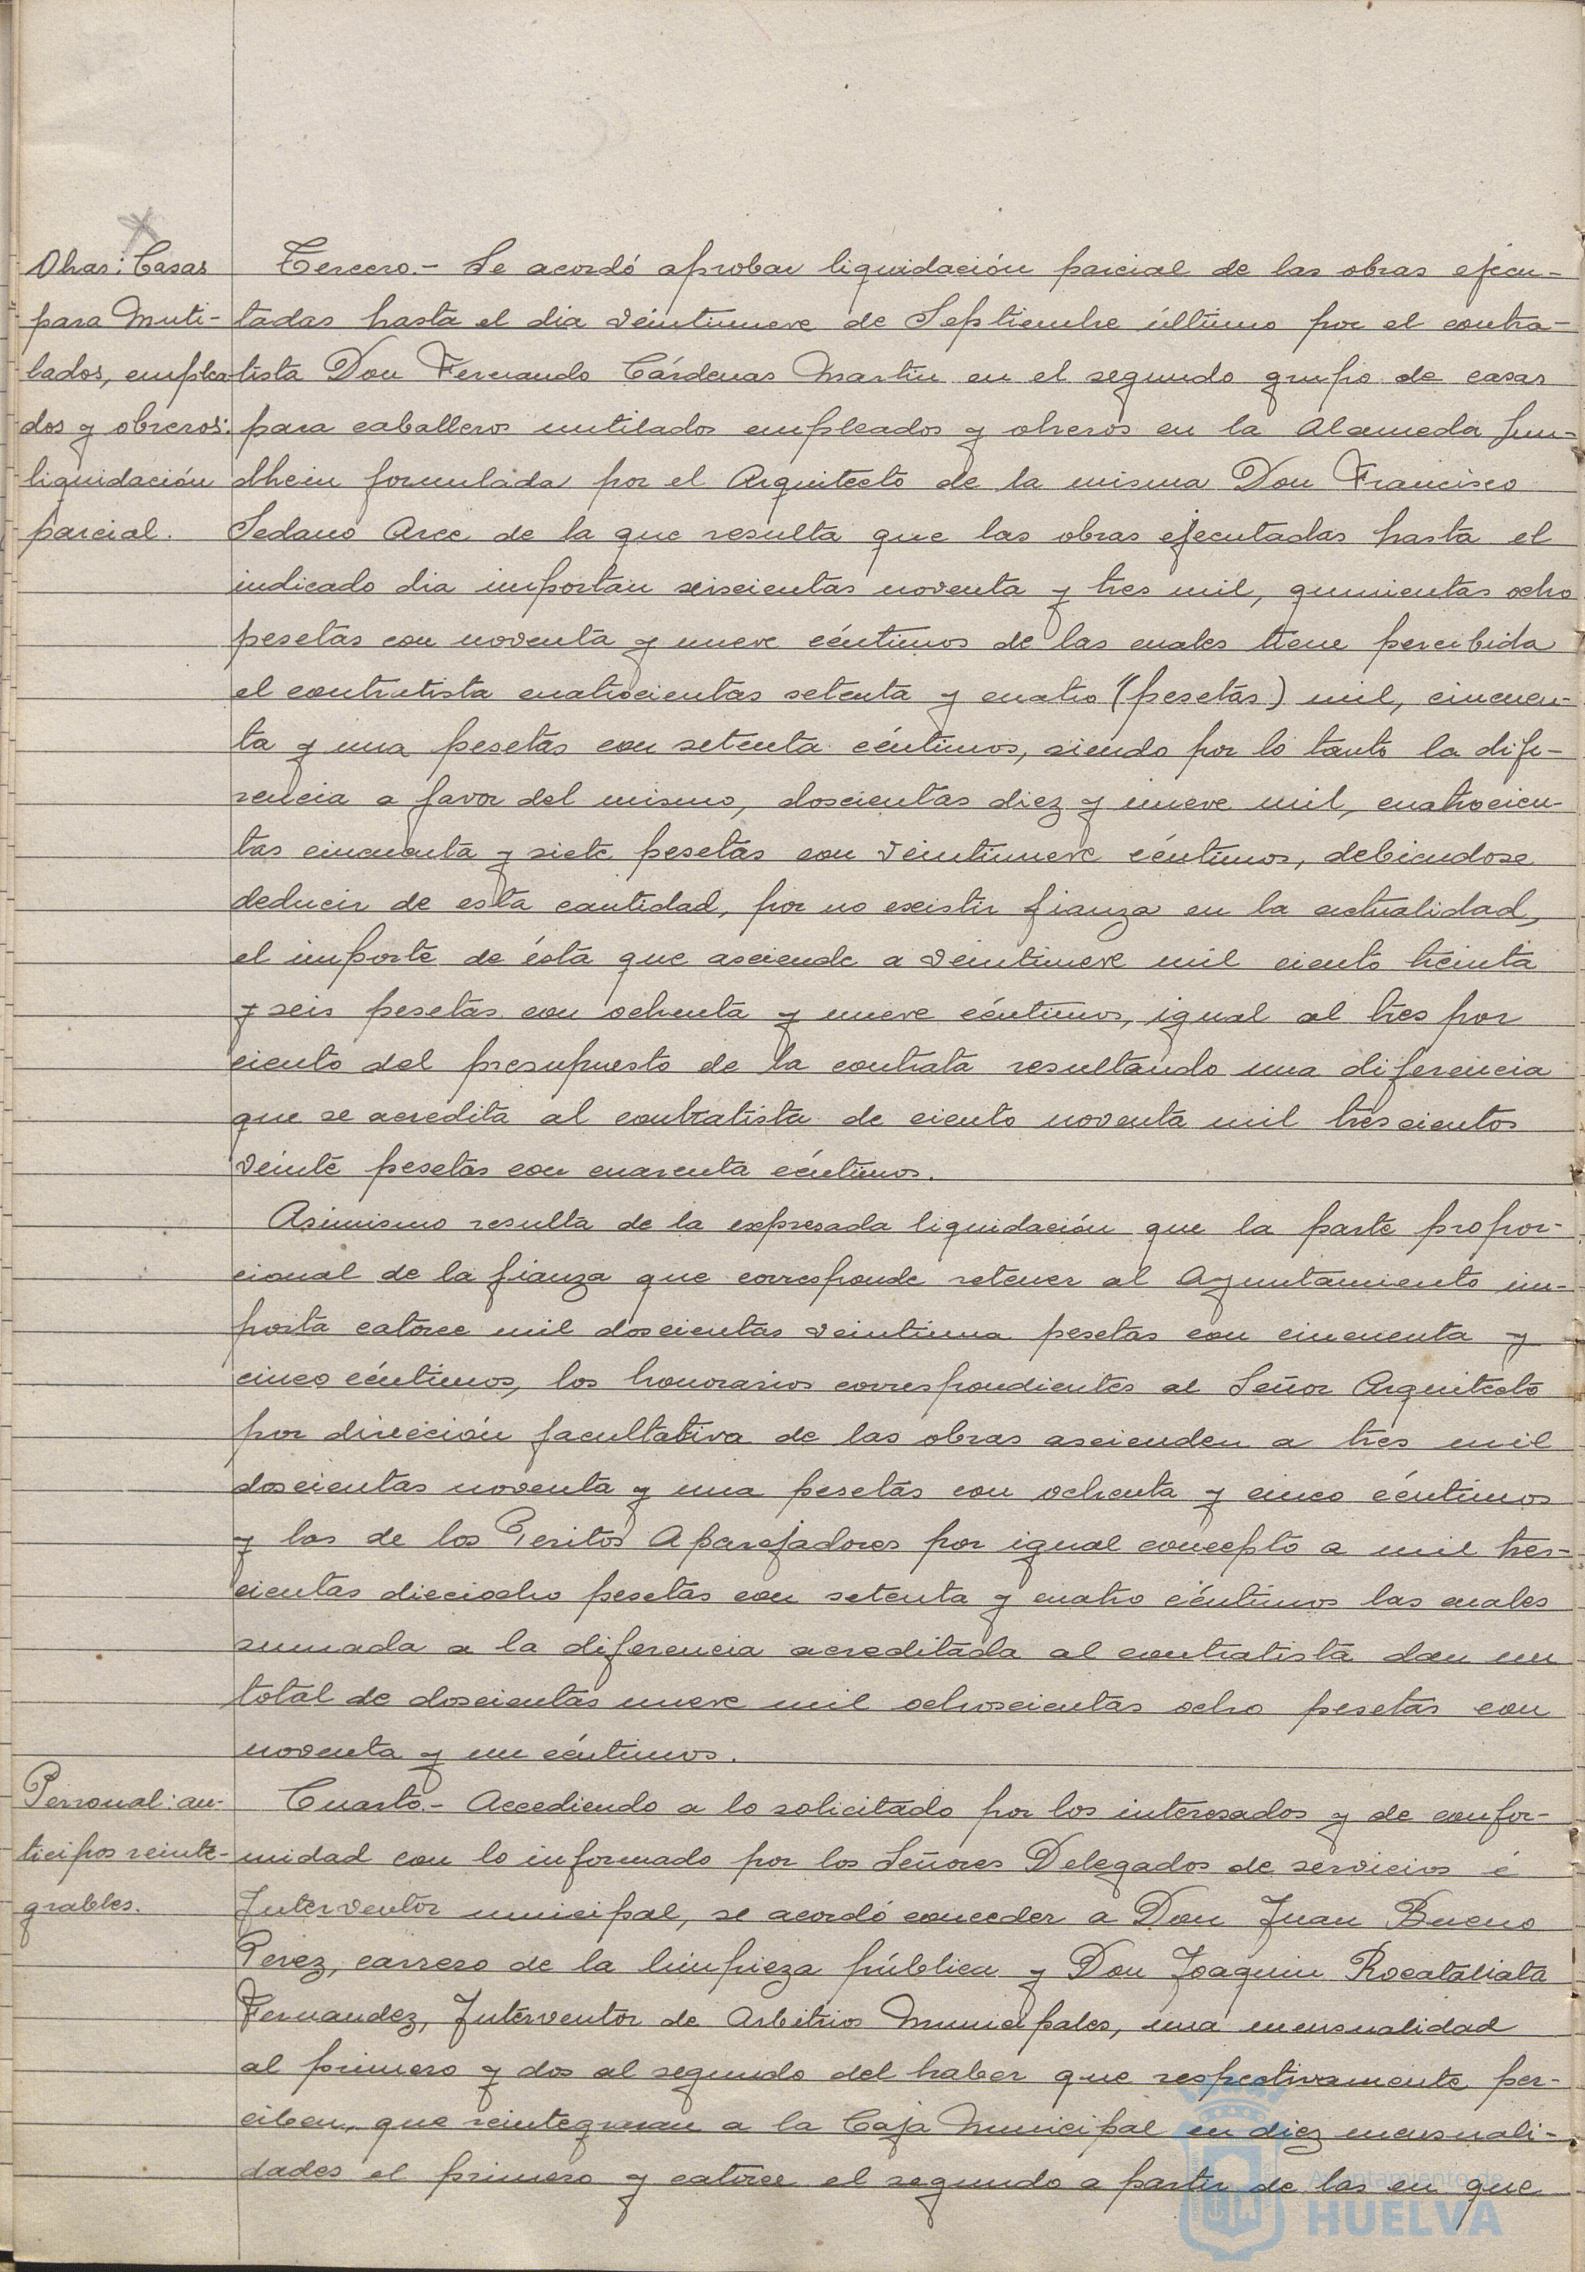 Obras: Casas
para Muti-
lados, emplea-
dos y obreros:
liquidación
parcial.
Tercero.- Se acordó aprobar liquidación parcial de las obras ejecu-
tadas hasta el dia veintinueve de Septiembre último por el contra-
tista Don Fernando Cárdenas Martín en el segundo grupo de casas
para caballeros mutilados empleados y obreros en la Alameda Sun-
dhein formulada por el Arquitecto de la misma Don Francisco
Sedano Arce de la que resulta que las obras ejecutadas hasta el
indicado dia importan seiscientas noventa y tres mil, quinientas ocho
pesetas con noventa y nueve céntimos de las cuales tiene percibida
el contratista cuatrocientas setenta y cuatro "(pesetas) mil, cincuen-
ta y una pesetas con setenta céntimos, siendo por lo tanto la dife-
rencia a favor del mismo, doscientas diez y nueve mil, cuatrocien-
tas cincuenta y siete pesetas con veintinueve céntimos, debiendose
deducir de esta cantidad, por no existir fianza en la actualidad,
el importe de ésta que asciende a veintinueve mil ciento treinta
y seis pesetas con ochenta y nueve céntimos, igual al tres por
ciento del presupuesto de la contrata resultando una diferencia
que se acredita al contratista de ciento noventa mil trescientos
veinte pesetas con cuarenta céntimos.
Asimismo resulta de la expresada liquidación que la parte propor-
cional de la fianza que corresponde retener al Ayuntamiento im-
porta catorce mil doscientas veintiuna pesetas con cincuenta y
cinco céntimos, los honorarios correspondientes al Señor Arquitecto
por dirección facultativa de las obras ascienden a tres mil
doscientas noventa y una pesetas con ochenta y cinco céntimos
y los de los Peritos Aparejadores por igual concepto a mil tres-
cientas dieciocho pesetas con setenta y cuatro céntimos las cuales
sumada a la diferencia acreditada al contratista dan un
total de doscientas nueve mil ochocientas ocho pesetas con
noventa y un céntimos.
Personal: an-
ticipos reinte-
grables.
Cuarto.- Accediendo a lo solicitado por los interesados y de confor-
midad con lo informado por los Señores Delegados de servicios é
Interventor municipal, se acordó conceder a Don Juan Bueno
Perez, carrero de la limpieza pública y Don Joaquin Rocataliata
Fernandez, Interventor de Arbitrios Municipales, una mensualidad
al primero y dos al segundo del haber que respectivamente per-
ciben, que reintegraran a la Caja Municipal en diez mensuali-
dades el primero y catorce el segundo a partir de las en que
Ayuntamiento de
HUELVA